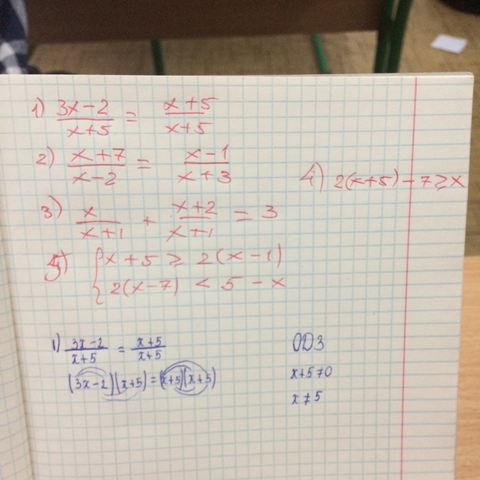 1) (3x-2)/(x+5) = (x+5)/(x+5)
2) (x+7)/(x-2) = (x-1)/(x+3)
4) 2(x+5) - 7 ≥ x
3) x/(x+1) + (x+2)/(x+1) = 3
5) { x + 5 ≥ 2(x-1)
2(x-7) < 5 - x
1) (3x-2)/(x+5) = (x+5)/(x+5)
ОДЗ
(3x-2)(x+5) = (x+5)(x+5)
x+5≠0
x≠5